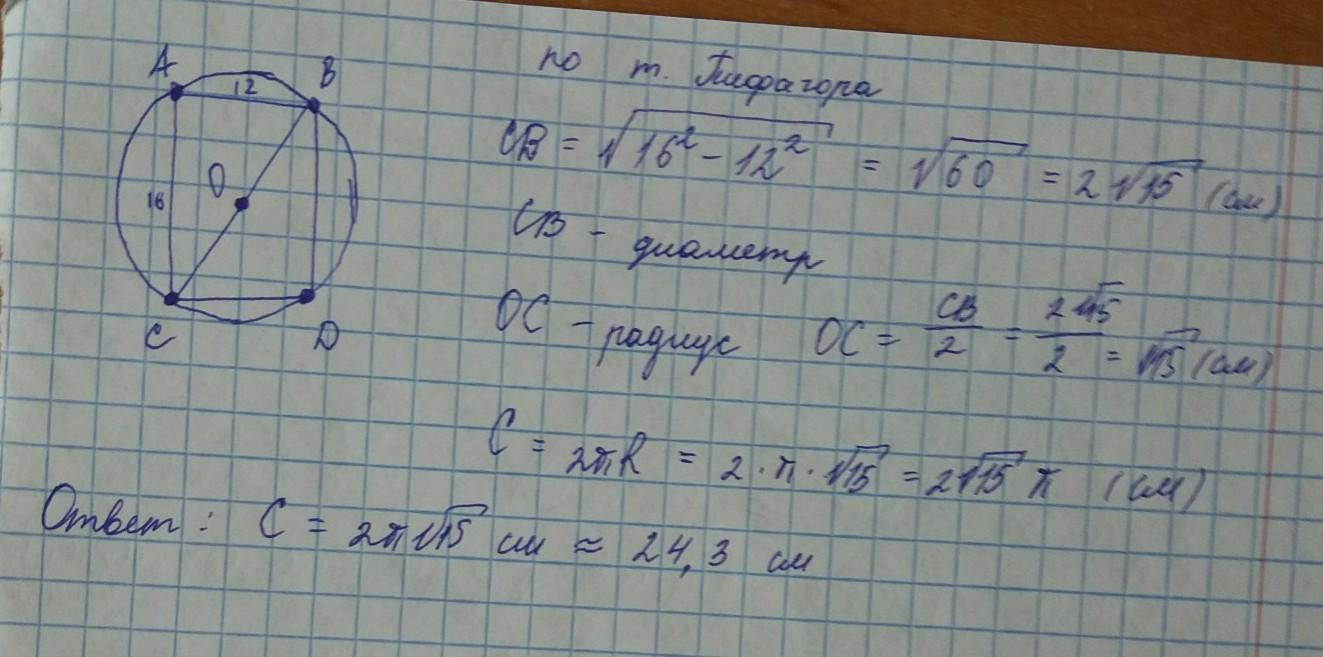 A 12 B
O
16
C D
по т. Пифагора
CB = √16² - 12² = √60 = 2√15 (см)
CB - диаметр
OC - радиус OC = CB/2 = 2√15/2 = √15 (см)
C = 2πR = 2 · π · √15 = 2√15 π (см)
Ответ: C = 2π√15 см ≈ 24,3 см